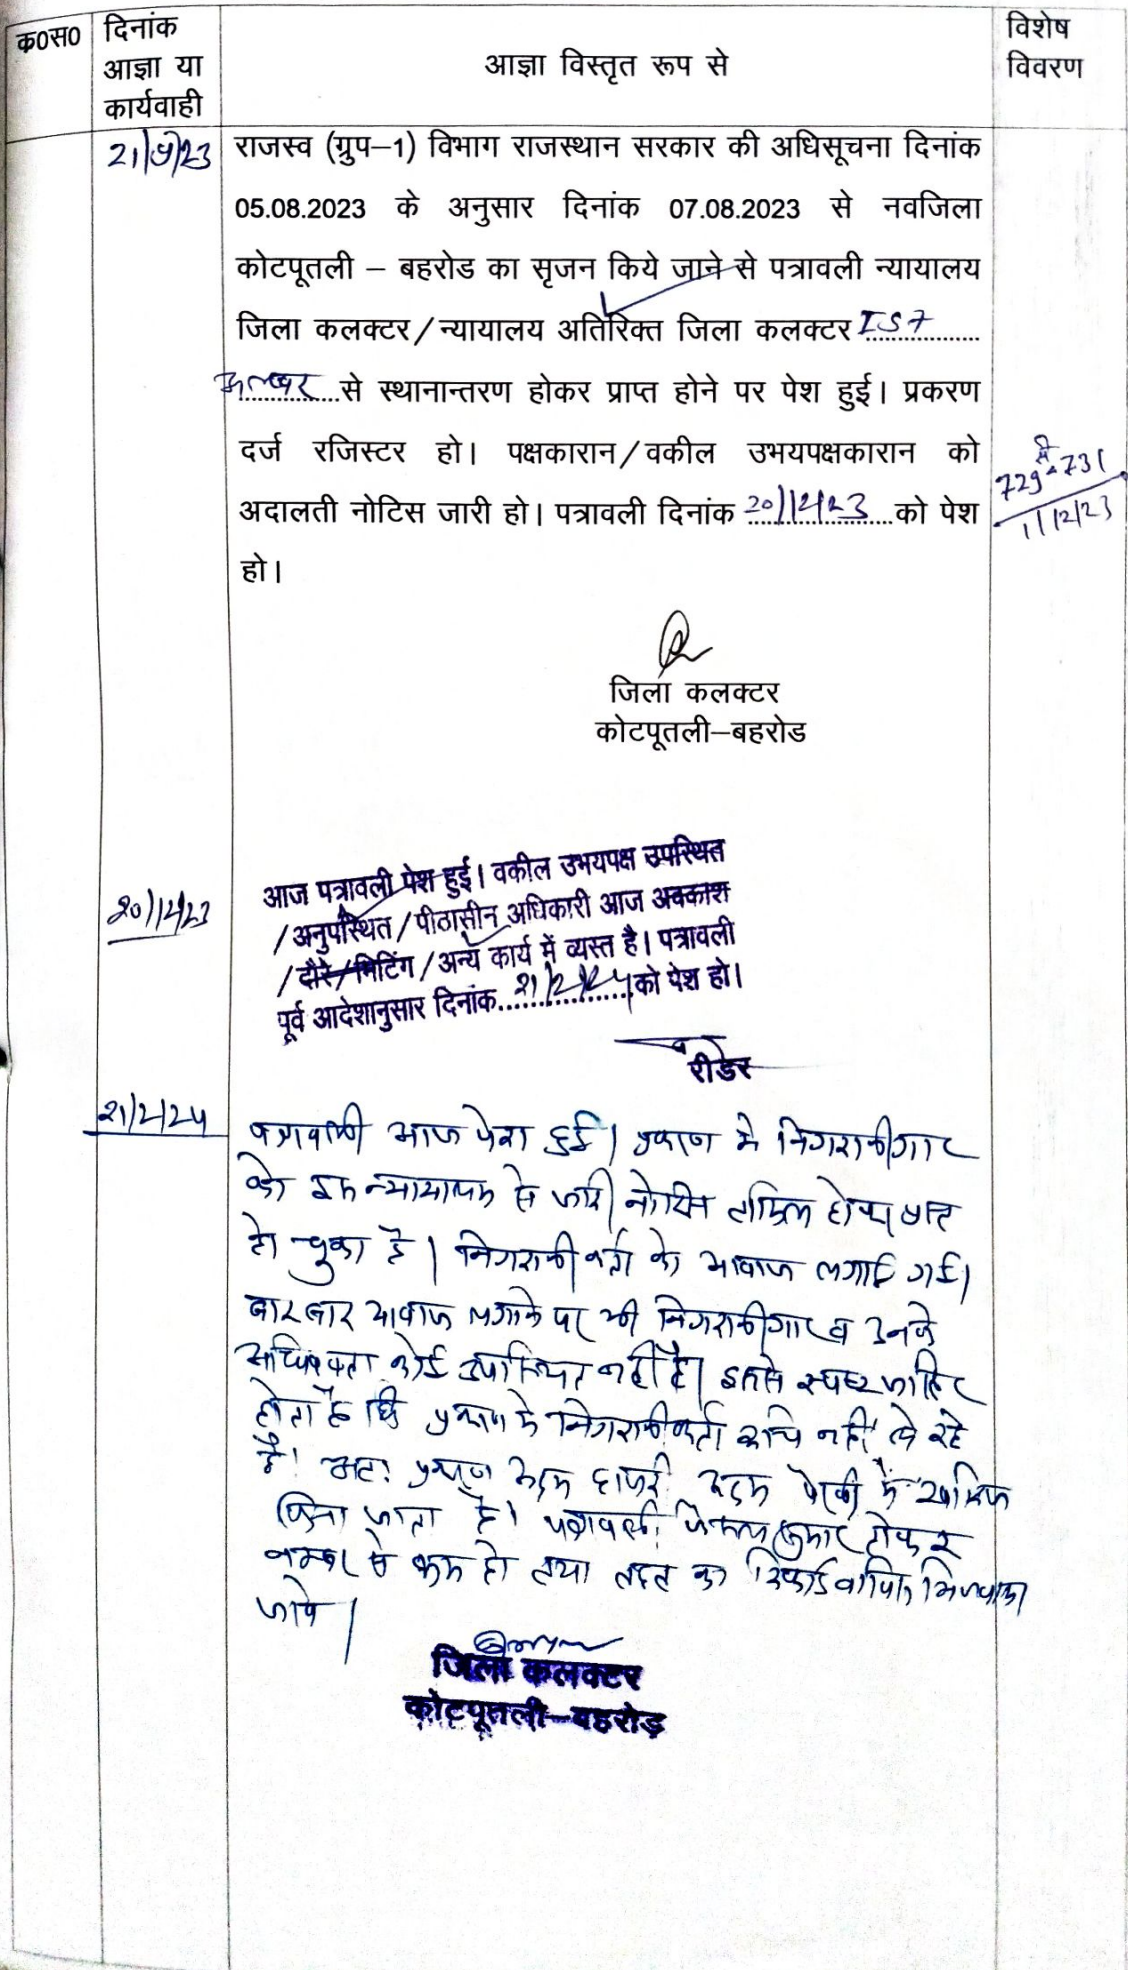 क0स0
दिनांक
आज्ञा या
कार्यवाही
आज्ञा विस्तृत रूप से
विशेष
विवरण
21/9/23
राजस्व (ग्रुप–1) विभाग राजस्थान सरकार की अधिसूचना दिनांक
05.08.2023 के अनुसार दिनांक 07.08.2023 से नवजिला
कोटपूतली – बहरोड का सृजन किये जाने से पत्रावली न्यायालय
जिला कलक्टर/न्यायालय अतिरिक्त जिला कलक्टर ISt
अलवर से स्थानान्तरण होकर प्राप्त होने पर पेश हुई। प्रकरण
दर्ज रजिस्टर हो। पक्षकारान/वकील उभयपक्षकारान को
अदालती नोटिस जारी हो। पत्रावली दिनांक 20/12/23 को पेश
हो।
से
729-731
1/12/23
जिला कलक्टर
कोटपूतली–बहरोड
20/12/23
आज पत्रावली पेश हुई। वकील उभयपक्ष उपस्थित
/अनुपस्थित/पीठासीन अधिकारी आज अवकाश
/दौरे/मिटिंग/अन्य कार्य में व्यस्त है। पत्रावली
पूर्व आदेशानुसार दिनांक 21/2/24 को पेश हो।
रीडर
21/2/24
पत्रावली आज पेश हुई। प्रकरण में निगरानीगार
को इस न्यायालय से जारी नोटिस तामिल होकर प्राप्त
हो चुका है। निगरानीकर्ता को आवाज लगाई गई।
बार बार आवाज लगाने पर भी निगरानीगार व उनके
अधिवक्ता कोई उपस्थित नहीं है। इससे स्पष्ट जाहिर
होता है कि प्रकरण में निगरानीकर्ता रूचि नहीं ले रहे
है। अतः प्रकरण अदम हाजरी अदम पैरवी में खारिज
किया जाता है। पत्रावली फैसल शुमार होकर
नम्बर से कम हो तथा तहत का रिकार्ड वापिस भिजवाया
जावे।
जिला कलक्टर
कोटपूतली–बहरोड़